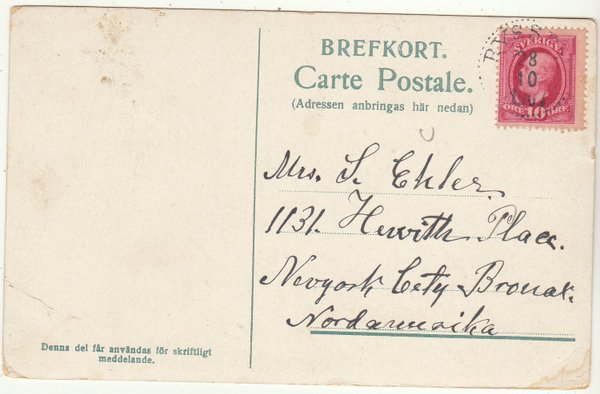 BREFKORT.
Carte Postale.
(Adressen anbringas här nedan)
SVERIGE
28
10
ÖRE 10 ÖRE
Mrs. S. Ekler
1131. Hewith Place.
Nevyork City Bronax.
Nordamerika
Denna del får användas för skriftligt
meddelande.